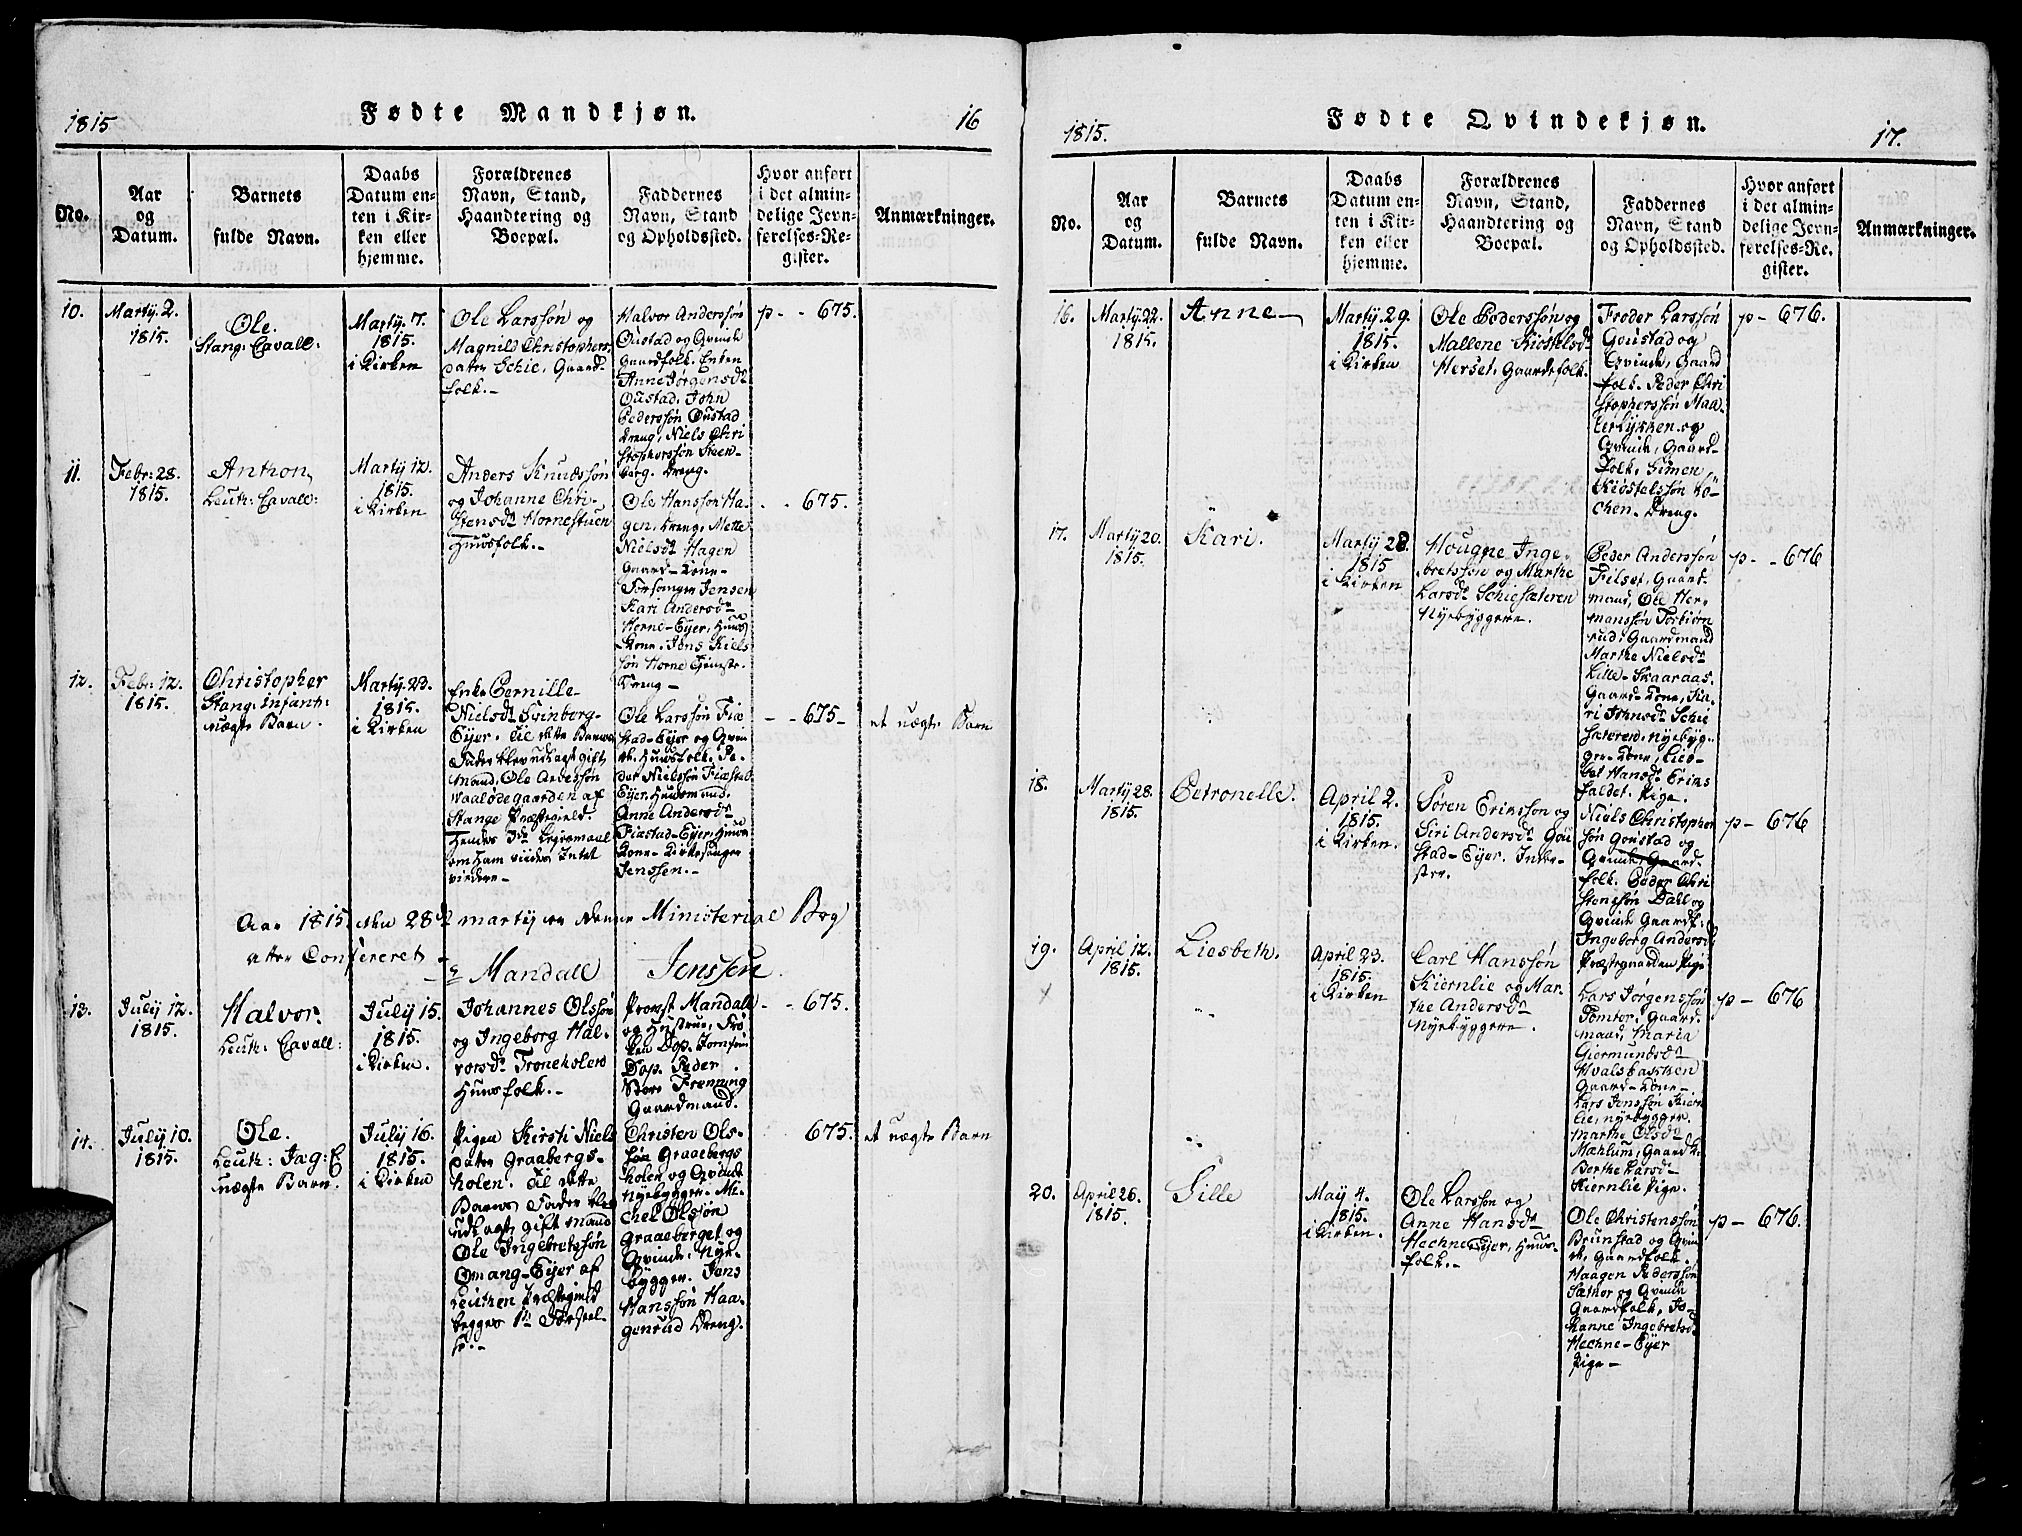 1815
Fødte Mandkjøn.
16
No.
Aar
og
Datum.
Barnets
fulde Navn.
Daabs
Datum en-
ten i Kir-
ken eller
hjemme.
Forældrenes
Navn, Stand,
Haandtering og
Boepæl.
Faddernes
Navn, Stand
og Opholdssted.
Hvor anført
i det almin-
delige Jevn-
førelses-Re-
gister.
Anmærkninger.
10.
Martÿ. 2.
1815.
Ole.
Stang: Cavall:
Martÿ. 7.
1815.
i Kirken
Ole Larssøn og
Magnild Christophers
datter Schie, Gaard-
folk.-
Halvor Anderssøn
Oustad og Qvinde
Gaardfolk. Enken
Anne Jørgensdr
Oustad. John
Pederssøn Oustad
Dreng, Niels Chri
stopherssøn Steen-
berg. Dreng.
p - - 675.
11.
Febr: 28.
1815.
Anthon,
Leuth: Cavall:
Martÿ 12.
1815.
i Kirken
Anders Knudssøn
og Johanne Chri-
stensdr Hornestuen
Huusfolk.-
Ole Hanssøn Ha-
gen, Dreng, Mette
Nielsdr Hagen
Gaard-Kone-
Forsanger Jensen
Kari Andersdr
Horne-Eÿer, Huus
Kone. Jens Niels
søn Horne Tjeneste
Dreng -
- - 675.
12.
Febr: 12.
1815.
Christopher
Stang: Infant:
uægte Barn.
Martÿ. 23.
1815.
i Kirken
Enke Pernille
Nielsdr Svinborg-
Eÿer. Til dette Barns
Fader blev udlagt gift
Mand, Ole Arnessøn
Vaalødegaarden af
Stange Præstegield.
Hendes 3de Leyermaal
om Ham vides Intet
videre -
Ole Larssøn Fia
stad-Eÿer og Qvin
de. Huusfolk. Pe-
der Nielssøn Fiæstad
Eÿer. Huusmand.
Anne Andersdr
Fiæstad-Eÿer. Huus
Kone- Kirkesanger
Jenssen.-
- - 675-
et uægte Barn
Aar 1815 den 28de martÿ er denne Ministerial Bog
atter Confereret
Mandall Jenssen
13.
Julÿ 12.
1815.
Halvor.
Leuth: Cavall:
Julÿ 15.
1815.
i Kirken.
Johannes Olssøn
og Ingeborg Hal-
vorsdr Troneholen
Huusfolk.-
Provst Mandall
og Hustrue, Frø
ken Dop. Jomfrue
Dop. Peder
Store Frenning
Gaardmand.
- - 675.
14.
Julÿ 10.
1815.
Ole.
Leuth: Jæg: C
uægte Barn.
Julÿ 16.
1815.
i Kirken
Pigen Kirsti Niels
datter Graabergs-
holen. Til dette
Barns Fader blev
udlagt gift mand
Ole Ingebretssøn
Omang-Eÿer af
Leuthen Præstegield
begges 1te Forseel-
se.-
Christen Ols-
søn Graaebergs
holen og Qvinde
Nyebyggere. Mi-
chel Olssøn
Graaeberget og
Qvinde, Nye-
bÿggere. Jens
Hanssøn Haa-
gensrud Dreng.
675.
et uægte Barn
1815.
Fødte Qvindekjøn.
17.
No.
Aar
og
Datum.
Barnets
fulde Navn.
Daabs
Datum en-
ten i Kir-
ken eller
hjemme.
Forældrenes
Navn, Stand,
Haandtering og
Boepæl.
Faddernes
Navn, Stand
og Opholdssted.
Hvor anført
i det almin-
delige Jevn-
førelses-Re-
gister.
Anmærkninger.
16.
Martÿ. 22.
1815.
Anne
Martÿ. 29.
1815.
i Kirken
Ole Pederssøn og
Mallene Kiøstelsdr
Herset. Gaardfolk.
Froder Larssøn
Goustad og
Qvinde, Gaard
folk. Peder Chri
stopherssøn Maa-
lerløkken og
Qvinde, Gaard-
folk. Simen
Kiøstelssøn Kø-
chen. Dreng.
p - 676.
17.
Martÿ 20.
1815.
Kari.
Martÿ 28.
1815
i Kirken
Hougne Inge-
bretssøn og Marthe
Larsdr Schiesæteren
Nÿebyggere.
Peder Anderssøn
Filset, Gaard
mand, Ole Her-
manssøn Torbiørn
rud, Gaardmand
Marthe Nielsdr
Lille-Skaaraas.
Gaard-Kone, Ka-
ri Johnsdr Schie
sæteren. Nyebÿg-
ger-Kone, Lies-
bet Hansdr Eriks
faldet. Pige.
p - - 676
18.
Martÿ 28.
1815.
Petronelle.
April 2.
1815.
i Kirken.
Søren Erikssøn og
Siri Andersdr Gou
stad-Eÿer. Inder-
ster.
Niels Christopher
søn Goustad og
Qvinde, Gaard-
folk. Peder Chri
stenssøn Dall og
Qvinde Gaardf:
Ingeborg Andersd:
Præstegaarden Pige
p - 676
19.
April 12.
1815.
Liesbeth.
April 23.
1815.
i Kirken
Carl Hanssøn
Kiernlie og Mar-
the Andersdr
Nÿebÿggere.
Lars Jørgenssøn
Tomter. Gaard-
mand, Maria
Giermundsdr
Hvalsbakken
Gaard-Kone-
Lars Jenssøn Kiern
lie, Nyebyggere.
Marthe Olsdr
Mæhlum, Gaard K.
Berthe Larsdr
Kiernlie Pige.
p - 676
20.
April 26.
1815.
Sille
Maÿ 4.
1815.
i Kirken.
Ole Larssøn og
Anne Hansdr
Hechne Eÿer, Huus-
folk.-
Ole Christenssøn
Brunstad og Qvin
de, Gaardfolk.
Haagen Pederssøn
Sæther og Qvinde
Gaardfolk, Jo-
hanne Ingebretsdr
Hechne-Eÿer
Pige -
p - 676.